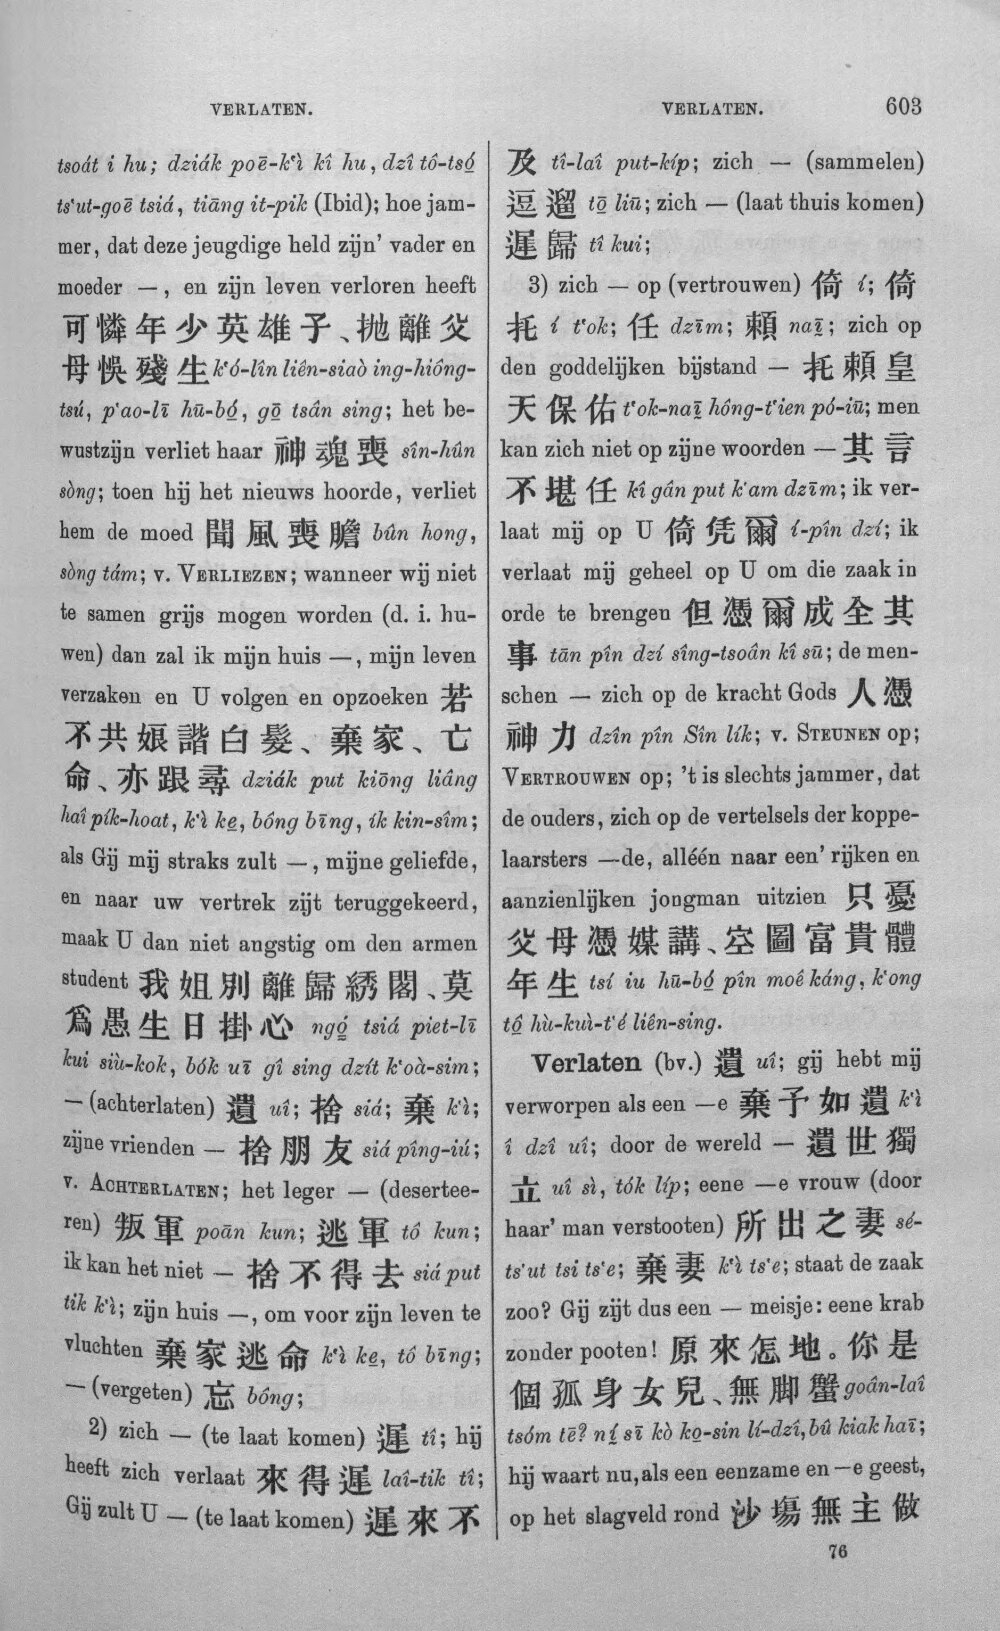 VERLATEN.
VERLATEN. 603
tsoát i hu; dziák poē-k‘ì kî hu, dzî tô-tsó̱
ts‘ut-goē tsiá, tiāng it-pik (Ibid); hoe jam-
mer, dat deze jeugdige held zijn’ vader en
moeder —, en zijn leven verloren heeft
可憐年少英雄子、抛離父
母悞殘生 k‘ó-lîn liên-siaò ing-hiông-
tsú, p‘ao-lī hū-bó̱, gō̱ tsân sing; het be-
wustzijn verliet haar 神魂喪 sîn-hûn
sòng; toen hij het nieuws hoorde, verliet
hem de moed 聞風喪膽 bûn hong,
sòng tám; v. VERLIEZEN; wanneer wij niet
te samen grijs mogen worden (d. i. hu-
wen) dan zal ik mijn huis —, mijn leven
verzaken en U volgen en opzoeken 若
不共娘諧白髮、棄家、亡
命、亦跟尋 dziák put kiōng liâng
haî pík-hoat, k‘ì ke̱, bông bīng, ík kin-sîm;
als Gij mij straks zult —, mijne geliefde,
en naar uw vertrek zijt teruggekeerd,
maak U dan niet angstig om den armen
student 我姐別離歸綉閣、莫
爲愚生日掛心 ngó̱ tsiá piet-lī
kui siù-kok, bók uī gî sing dzít k‘oà-sim;
— (achterlaten) 遺 uî; 捨 siá; 棄 k‘ì;
zijne vrienden — 捨朋友 siá pîng-iú;
v. ACHTERLATEN; het leger — (desertee-
ren) 叛軍 poān kun; 逃軍 tô kun;
ik kan het niet — 捨不得去 siá put
tik k‘ì; zijn huis —, om voor zijn leven te
vluchten 棄家逃命 k‘ì ke̱, tô bīng;
— (vergeten) 忘 bông;
2) zich — (te laat komen) 遲 tî; hij
heeft zich verlaat 來得遲 laî-tik tî;
Gij zult U — (te laat komen) 遲來不
及 tî-laî put-kíp; zich — (sammelen)
逗遛 tō̱ liū; zich — (laat thuis komen)
遲歸 tî kui;
3) zich — op (vertrouwen) 倚 í; 倚
托 í t‘ok; 任 dzīm; 賴 naī̱; zich op
den goddelijken bijstand — 托賴皇
天保佑 t‘ok-naī̱ hông-t‘ien pó-iū; men
kan zich niet op zijne woorden — 其言
不堪任 kî gân put k‘am dzīm; ik ver-
laat mij op U 倚凭爾 í-pîn dzí; ik
verlaat mij geheel op U om die zaak in
orde te brengen 但憑爾成全其
事 tān pîn dzí sîng-tsoân kî sū; de men-
schen — zich op de kracht Gods 人憑
神力 dzîn pîn Sîn lík; v. STEUNEN op;
VERTROUWEN op; ’t is slechts jammer, dat
de ouders, zich op de vertelsels der koppe-
laarsters —de, alléén naar een’ rijken en
aanzienlijken jongman uitzien 只憂
父母憑媒講、空圖富貴體
年生 tsí iu hū-bó̱ pîn moê káng, k‘ong
tô̱ hù-kuì-t‘é liên-sing.
Verlaten (bv.) 遺 uî; gij hebt mij
verworpen als een —e 棄予如遺 k‘ì
î dzî uî; door de wereld — 遺世獨
立 uî sì, tók líp; eene —e vrouw (door
haar’ man verstooten) 所出之妻 sé-
ts‘ut tsi ts‘e; 棄妻 k‘ì ts‘e; staat de zaak
zoo? Gij zijt dus een — meisje: eene krab
zonder pooten! 原來怎地。你是
個孤身女兒、無脚蟹 goân-laî
tsóm tē? ní̱ sī kò ko̱-sin lí-dzî, bû kiak haī;
hij waart nu, als een eenzame en —e geest,
op het slagveld rond 沙塲無主做
76